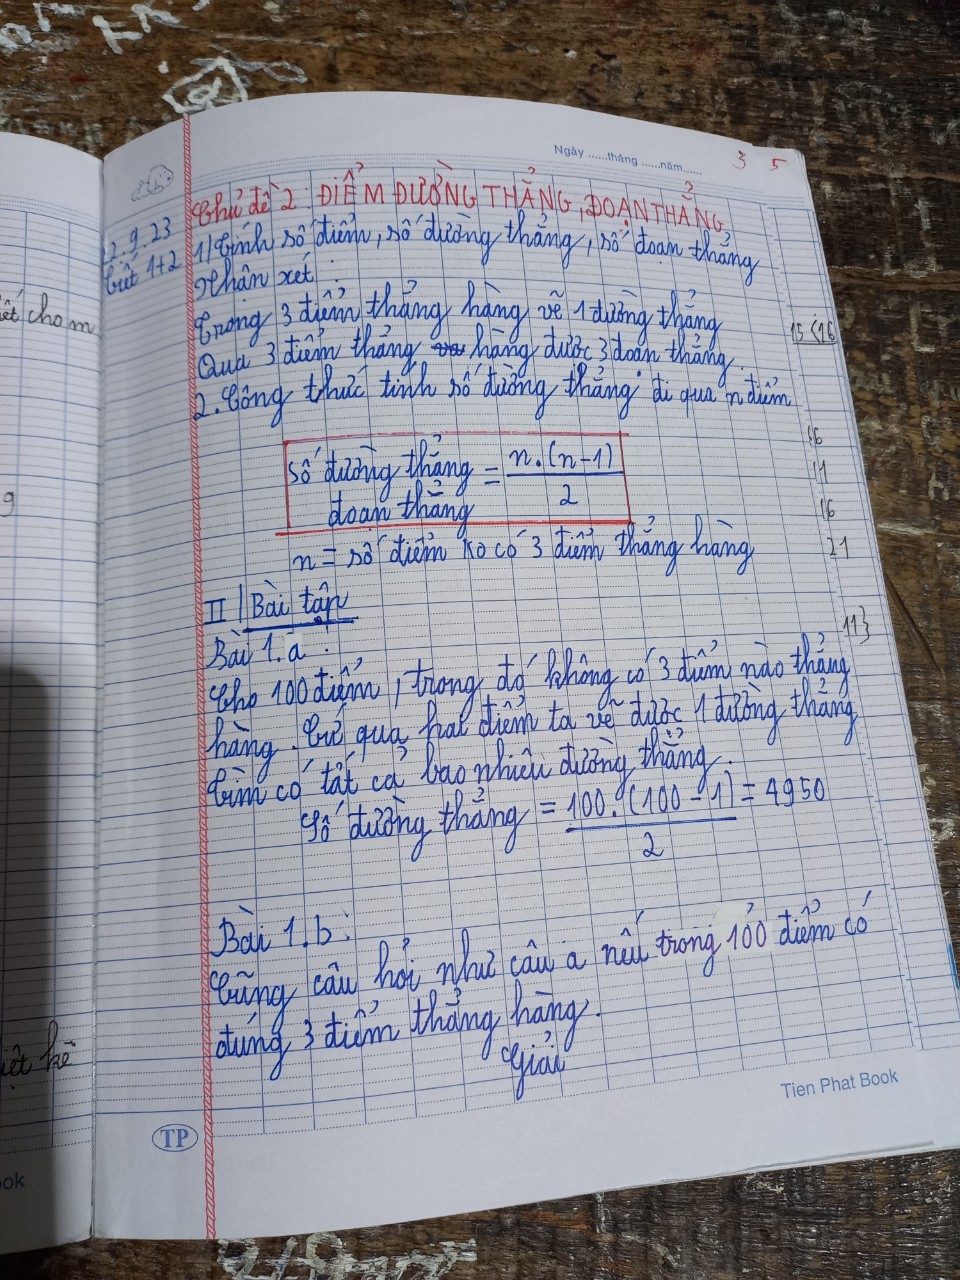 Ngày ......tháng ......năm......
3 5
Chủ đề 2: ĐIỂM ĐƯỜNG THẲNG, ĐOẠN THẲNG
12.9.23
Tiết 1+2
1) Tính số điểm, số đường thẳng, số đoạn thẳng
Nhận xét:
Trong 3 điểm thẳng hàng vẽ 1 đường thẳng
Qua 3 điểm thẳng hàng được 3 đoạn thẳng.
2. Công thức tính số đường thẳng đi qua n điểm
số đường thẳng = n.(n-1)
đoạn thẳng 2
n = số điểm ko có 3 điểm thẳng hàng
II | Bài tập
Bài 1.a:
Cho 100 điểm, trong đó không có 3 điểm nào thẳng
hàng. Cứ qua hai điểm ta vẽ được 1 đường thẳng
Tìm có tất cả bao nhiêu đường thẳng.
Số đường thẳng = 100.(100-1) = 4950
2
Bài 1.b:
Cũng câu hỏi như câu a nếu trong 100 điểm có
đúng 3 điểm thẳng hàng.
Giải
Tien Phat Book
TP
15 (16
16
11
16
21
113
iết cho m
g
iệt kê
ook